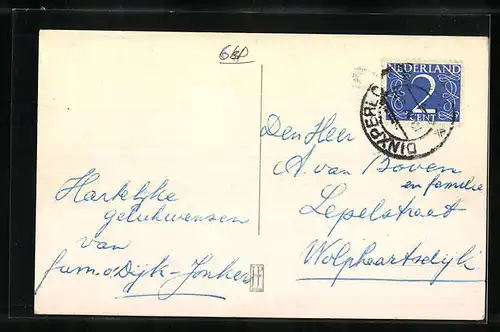 6EP
NEDERLAND
2
CENT
DINXPERLO
Den Heer
A. van Boven
en familie
Lepelstraat
Wolphaartsdijk
Hartelijke
gelukwensen
van
fam. v Dijk-Jonker